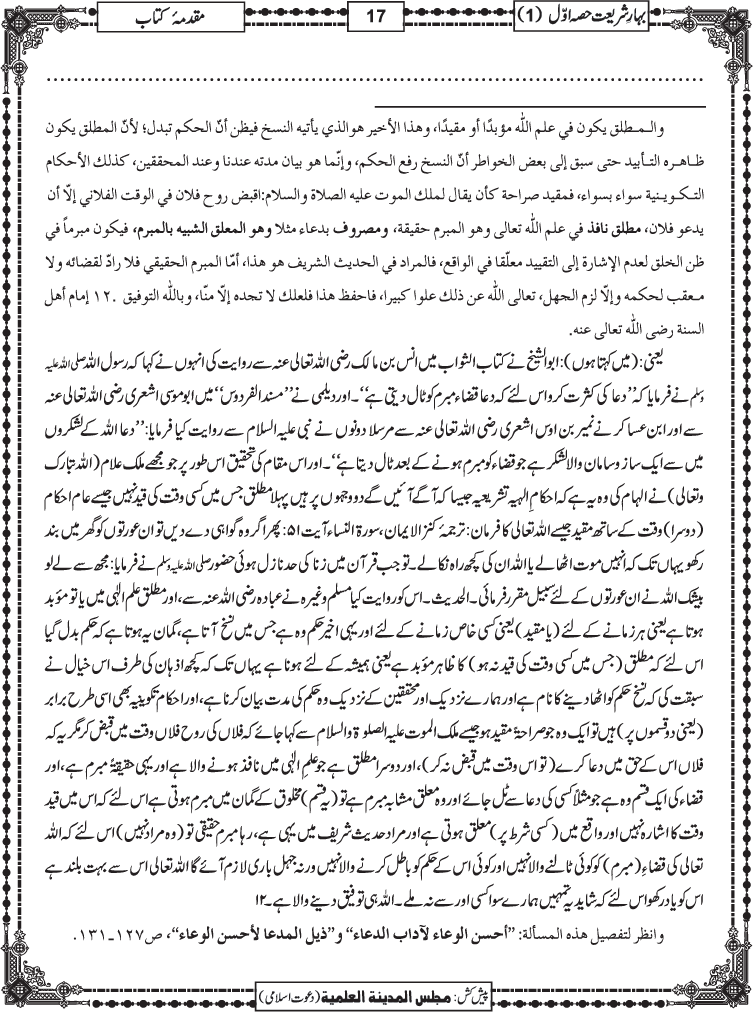 بہارِشریعت حصہ اوّل (1)
17
مقدمۂ کتاب
..........................................................................................
والـمـطلق يكون في علم اللّٰه مؤبدًا أو مقيدًا، وهذا الأخير هو الذي يأتيه النسخ فيظن أنّ الحكم تبدل؛ لأنّ المطلق يكون
ظـاهـره التـأبيد حتى سبق إلى بعض الخواطر أنّ النسخ رفع الحكم، وإنّما هو بيان مدته عندنا وعند المحققين، كذلك الأحكام
التـكـويـنية سواء بسواء، فمقيد صراحة كأن يقال لملك الموت عليه الصلاة والسلام:اقبض روح فلان في الوقت الفلاني إلّا أن
يدعو فلان، مطلق نافذ في علم اللّٰه تعالى وهو المبرم حقيقة، ومصروف بدعاء مثلا وهو المعلق الشبيه بالمبرم، فيكون مبرماً في
ظن الخلق لعدم الإشارة إلى التقييد معلّقا في الواقع، فالمراد في الحديث الشريف هو هذا، أمّا المبرم الحقيقي فلا رادّ لقضائه ولا
مـعقب لحكمه وإلّا لزم الجهل، تعالى اللّٰه عن ذلك علوا كبيرا، فاحفظ هذا فلعلك لا تجده إلّا منّا، وباللّٰه التوفيق .۱۲ إمام أهل
السنة رضى اللّٰه تعالى عنه.
یعنی:(میں کہتا ہوں):ابوالشیخ نے کتاب الثواب میں انس بن مالک رضی اللہ تعالی عنہ سے روایت کی انہوں نے کہا کہ رسول اللہ صلی اللہ علیہ
وسلم نے فرمایا کہ ”دعا کی کثرت کرو اس لئے کہ دعا قضاء مبرم کو ٹال دیتی ہے“۔ اور دیلمی نے ”مسند الفردوس“ میں ابوموسی اشعری رضی اللہ تعالی عنہ
سے اور ابن عساکر نے نمیر بن اوس اشعری رضی اللہ تعالی عنہ سے مرسلا دونوں نے نبی علیہ السلام سے روایت کیا فرمایا: ”دعا اللہ کے لشکروں
میں سے ایک ساز و سامان والا لشکر ہے جو قضاء کو مبرم ہونے کے بعد ٹال دیتا ہے“۔ اور اس مقام کی تحقیق اس طور پر جو مجھے ملک علام (اللہ تبارک
وتعالی) نے الہام کی وہ یہ ہے کہ احکامِ الہیہ تشریعیہ جیسا کہ آگے آئیں گے دو وجہوں پر ہیں پہلا مطلق جس میں کسی وقت کی قید نہیں جیسے عام احکام
(دوسرا) وقت کے ساتھ مقید جیسے اللہ تعالی کا فرمان: ترجمۂ کنز الایمان، سورۃ النساء آیت ۵۱: پھر اگر وہ گواہی دے دیں تو ان عورتوں کو گھر میں بند
رکھو یہاں تک کہ انہیں موت اٹھالے یا اللہ ان کی کچھ راہ نکالے۔ تو جب قرآن میں زنا کی حد نازل ہوئی حضور صلی اللہ علیہ وسلم نے فرمایا: مجھ سے لے لو
بیشک اللہ نے ان عورتوں کے لئے سبیل مقرر فرمائی۔ الحدیث۔ اس کو روایت کیا مسلم وغیرہ نے عبادہ رضی اللہ عنہ سے، اور مطلق علم الٰہی میں یا تو مؤبد
ہوتا ہے یعنی ہر زمانے کے لئے (یا مقید) یعنی کسی خاص زمانے کے لئے اور یہی اخیر حکم وہ ہے جس میں نسخ آتا ہے، گمان یہ ہوتا ہے کہ حکم بدل گیا
اس لئے کہ مطلق (جس میں کسی وقت کی قید نہ ہو) کا ظاہر مؤبد ہے یعنی ہمیشہ کے لئے ہونا ہے یہاں تک کہ کچھ اذہان کی طرف اس خیال نے
سبقت کی کہ نسخ حکم کو اٹھا دینے کا نام ہے اور ہمارے نزدیک اور محققین کے نزدیک وہ حکم کی مدت بیان کرنا ہے، اور احکام تکوینیہ بھی اسی طرح برابر
(یعنی دو قسموں پر) ہیں تو ایک وہ جو صراحۃً مقید ہو جیسے ملک الموت علیہ الصلوۃ والسلام سے کہا جائے کہ فلاں کی روح فلاں وقت میں قبض کر مگر یہ کہ
فلاں اس کے حق میں دعا کرے (تو اس وقت میں قبض نہ کر)، اور دوسرا مطلق ہے جو علمِ الٰہی میں نافذ ہونے والا ہے اور یہی حقیقۃً مبرم ہے، اور
قضاء کی ایک قسم وہ ہے جو مثلاً کسی کی دعا سے ٹل جائے اور وہ معلق مشابہ مبرم ہے تو (یہ قسم) مخلوق کے گمان میں مبرم ہوتی ہے اس لئے کہ اس میں قید
وقت کا اشارہ نہیں اور واقع میں (کسی شرط پر) معلق ہوتی ہے اور مراد حدیث شریف میں یہی ہے، رہا مبرم حقیقی تو (وہ مراد نہیں) اس لئے کہ اللہ
تعالی کی قضاءِ (مبرم) کو کوئی ٹالنے والا نہیں اور کوئی اس کے حکم کو باطل کرنے والا نہیں ورنہ جہل باری لازم آئے گا اللہ تعالی اس سے بہت بلند ہے
اس کو یاد رکھو اس لئے کہ شاید یہ تمہیں ہمارے سوا کسی اور سے نہ ملے۔ اللہ ہی توفیق دینے والا ہے۔ ۱۲
وانظر لتفصيل هذه المسألة: ”أحسن الوعاء لآداب الدعاء“ و”ذيل المدعا لأحسن الوعاء“، ص۱۲۷۔۱۳۱.
پیش کش: مجلس المدينة العلمية (دعوت اسلامی)